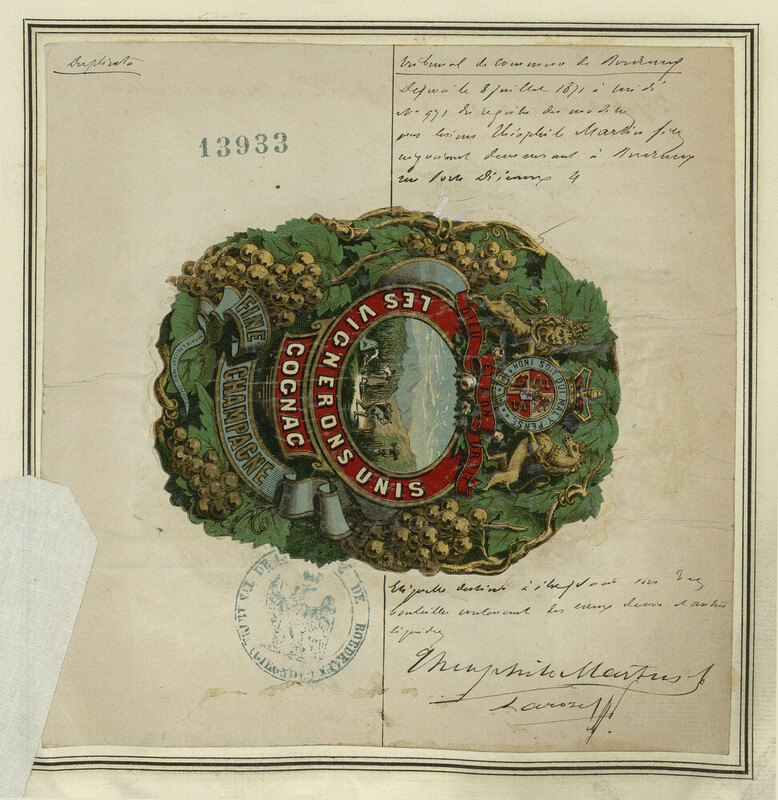 Duplicata
13933
Tribunal de commerce de Bordeaux
Déposé le 8 juillet 1871 à midi
N° 971 du registre des modèles
par lesieur Théophile Martin fils
négociant demeurant à Bordeaux
rue Porte Dijeaux 4
LES VIGNERONS UNIS
COGNAC
FINE CHAMPAGNE
DIEU ET MON DROIT
HONI SOIT QUI MAL Y PENSE
TRIBUNAL DE COMMERCE DE BORDEAUX (GIRONDE)
Etiquette destinée à être sur des
bouteilles contenant des eaux de vie et autres
liquides
Théophile Martin f